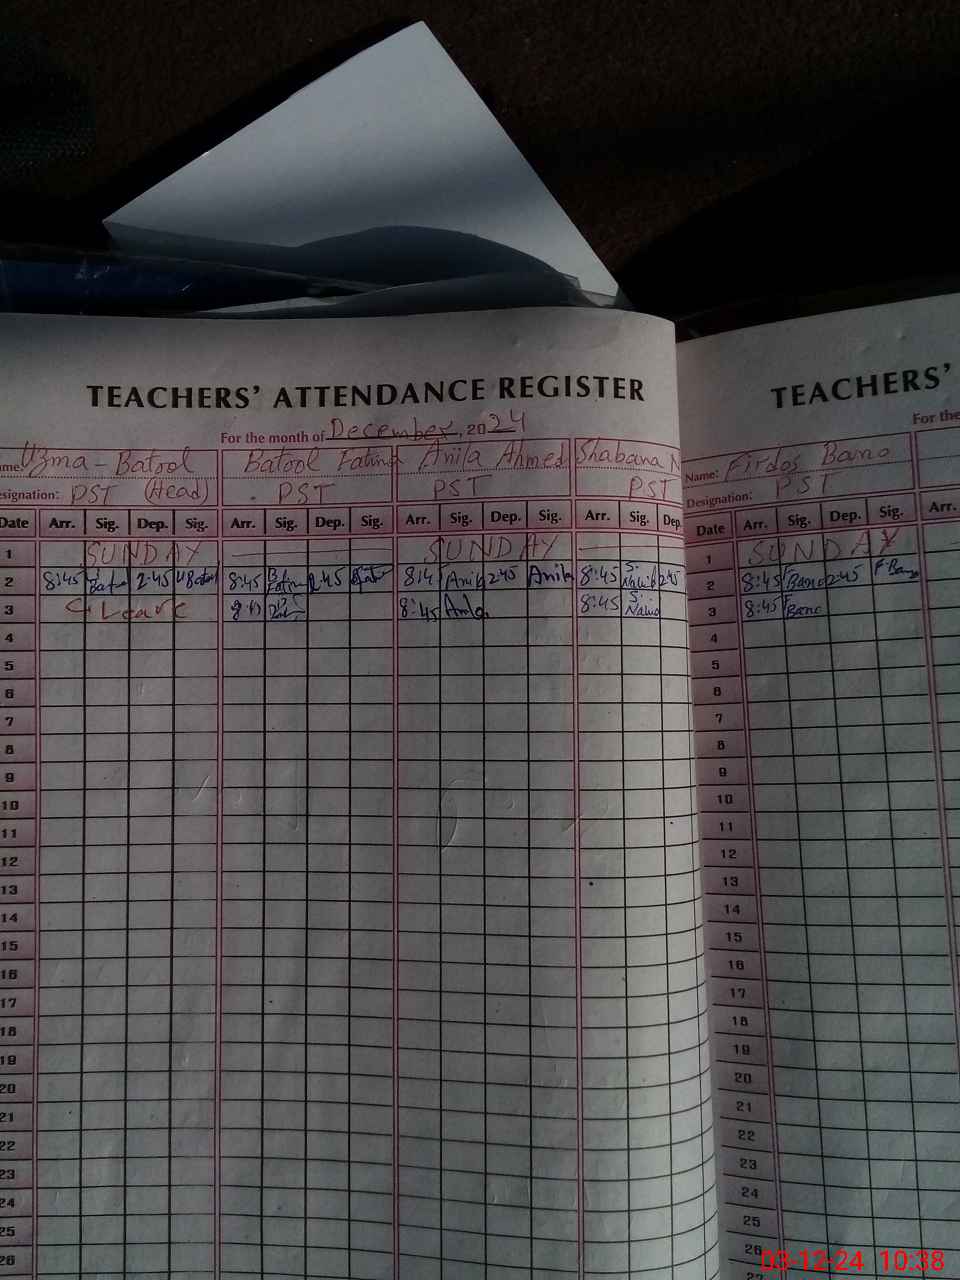 TEACHERS' ATTENDANCE REGISTER
For the month of December, 2024
Uzma - Batool Batool Fatima Anila Ahmed Shabana N
Designation: PST (Head) PST PST PST
Date Arr. Sig. Dep. Sig. Arr. Sig. Dep. Sig. Arr. Sig. Dep. Sig. Arr. Sig. Dep.
1 SUNDAY SUNDAY
2 8:45 Batool 2:45 UBatool 8:45 B. Fatima 2:45 Anila 2:45 Anila 8:45 S. Nawid 2:45
3 C. Leave 8:45 8:45 S. Nawid
4
5
6
7
8
9
10
11
12
13
14
15
16
17
18
19
20
21
22
23
24
25
26
TEACHERS'
For the
Name: Firdos Bano
Designation: PST
Date Arr. Sig. Dep. Sig. Arr.
1 SUNDAY
2 8:45 F Bano 2:45 F-Bano
3 8:45 F Bano
4
5
6
7
8
9
10
11
12
13
14
15
16
17
18
19
20
21
22
23
24
25
26
27
03-12-24 10:38